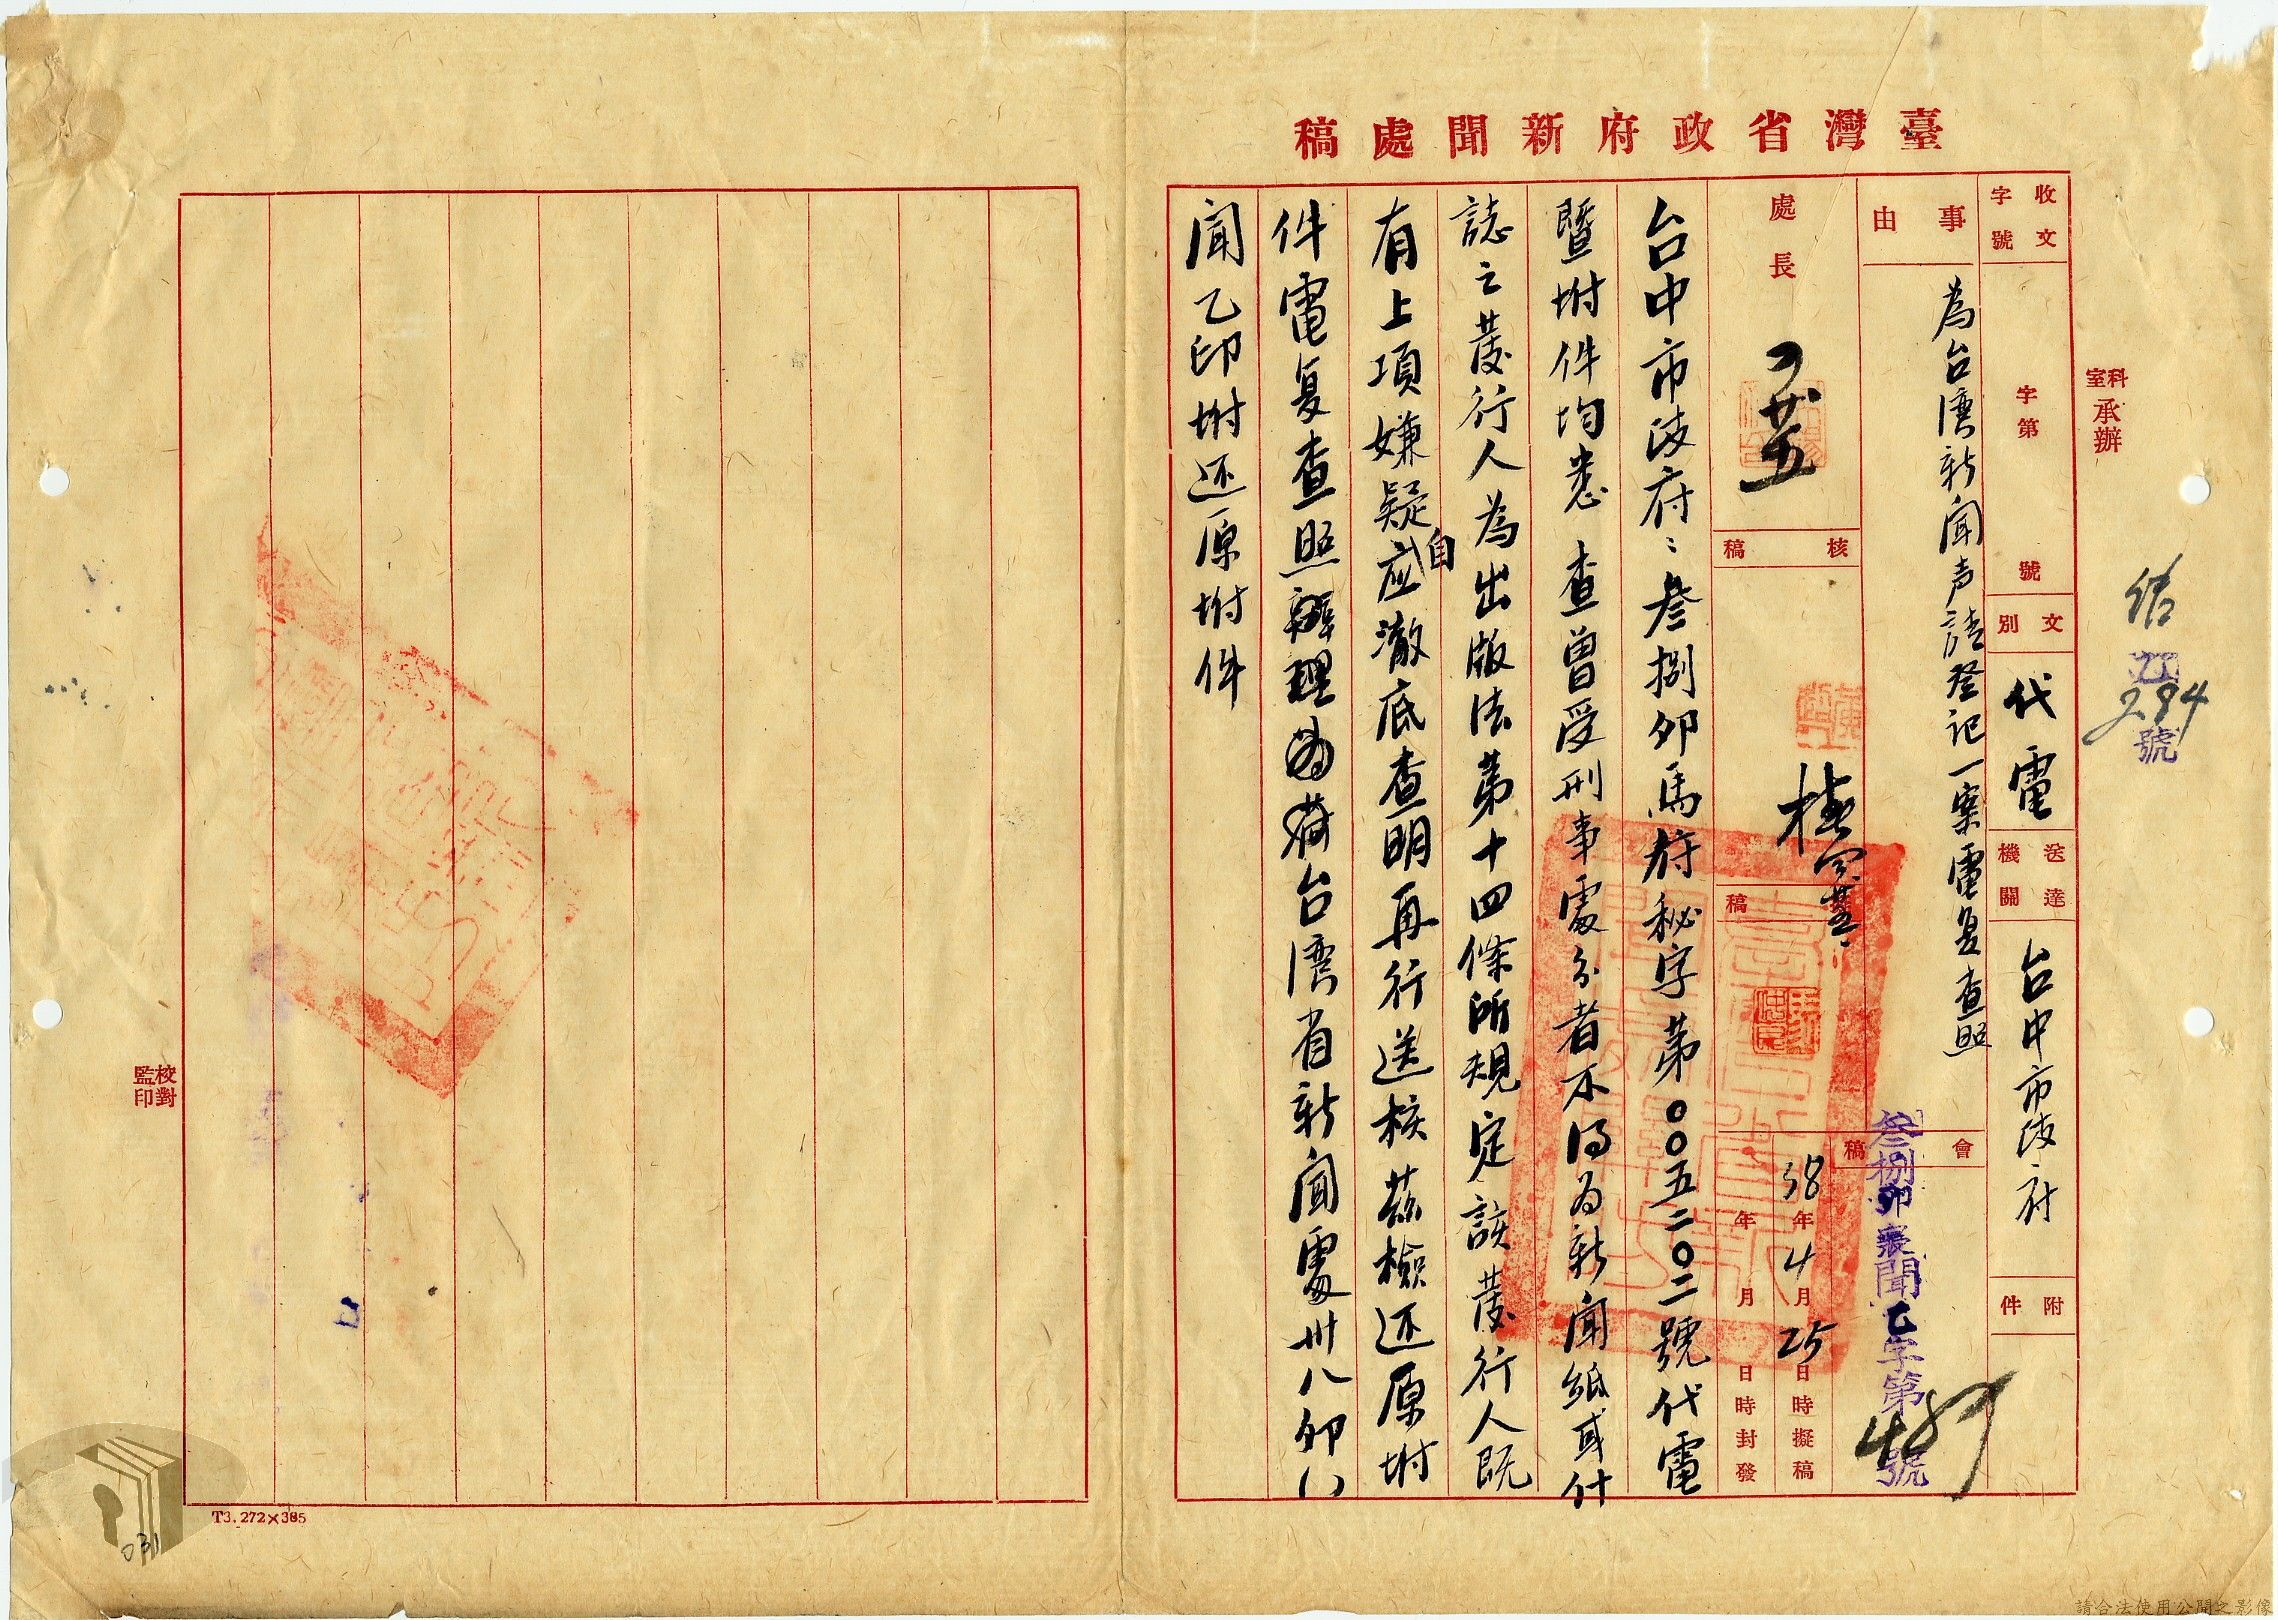 臺灣省政府新聞處稿
科室承辦
284號
收文字號
字第
號
文別
代電
送達機關
台中市政府
附件
事由
為台灣新聞声請登記一案電复查照
會稿
叁捌卯 聞乙字第489號
處長
核稿
稿
38年4月25日時擬稿
年月日時封發
台中市政府：叁捌卯馬府秘字第〇〇五二〇二號代電
暨附件均悉 查曾受刑事處分者不得为新聞紙或什
誌之發行人為出版法第十四條所規定該發行人既
有上項嫌疑自应澈底查明再行送核茲檢还原附
件電复查照辦理為荷台灣省新聞處卅八卯（）
聞乙印附还原附件
校對
監印
T3.272×385
031
請合法使用公開之影像